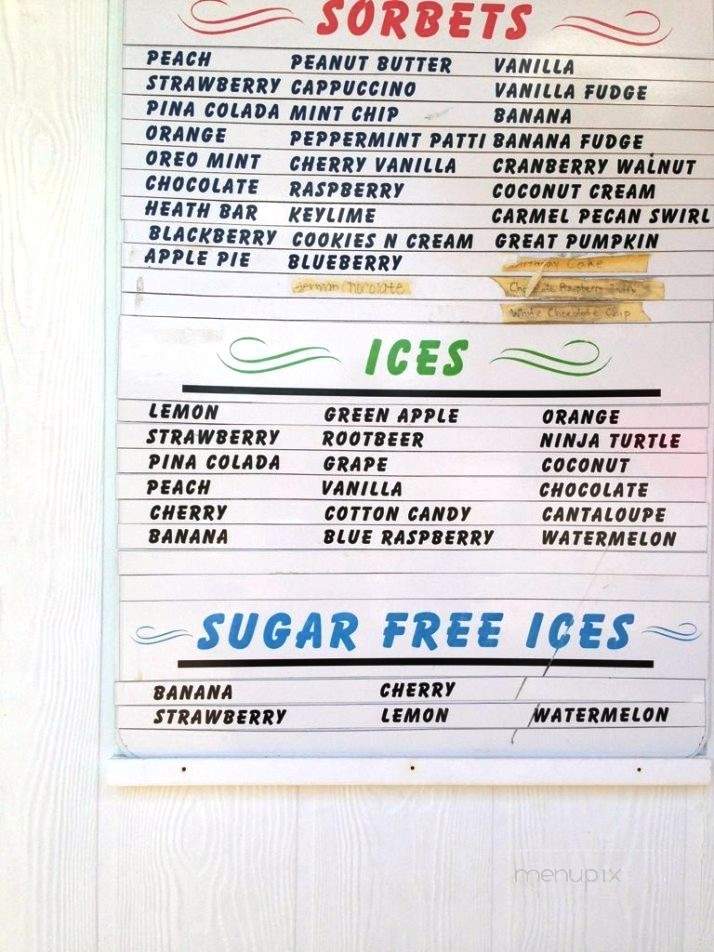 SORBETS
PEACH PEANUT BUTTER VANILLA
STRAWBERRY CAPPUCCINO VANILLA FUDGE
PINA COLADA MINT CHIP BANANA
ORANGE PEPPERMINT PATTI BANANA FUDGE
OREO MINT CHERRY VANILLA CRANBERRY WALNUT
CHOCOLATE RASPBERRY COCONUT CREAM
HEATH BAR KEYLIME CARMEL PECAN SWIRL
BLACKBERRY COOKIES N CREAM GREAT PUMPKIN
APPLE PIE BLUEBERRY Cake
German Chocolate Raspberry
White Chocolate Chip
ICES
LEMON GREEN APPLE ORANGE
STRAWBERRY ROOTBEER NINJA TURTLE
PINA COLADA GRAPE COCONUT
PEACH VANILLA CHOCOLATE
CHERRY COTTON CANDY CANTALOUPE
BANANA BLUE RASPBERRY WATERMELON
SUGAR FREE ICES
BANANA CHERRY
STRAWBERRY LEMON WATERMELON
menupix